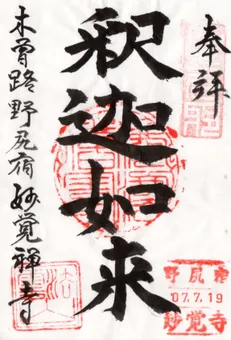 奉拝
釈迦如来
木曽路野尻宿妙覚禅寺
野尻宿
07.7.19
妙覚寺